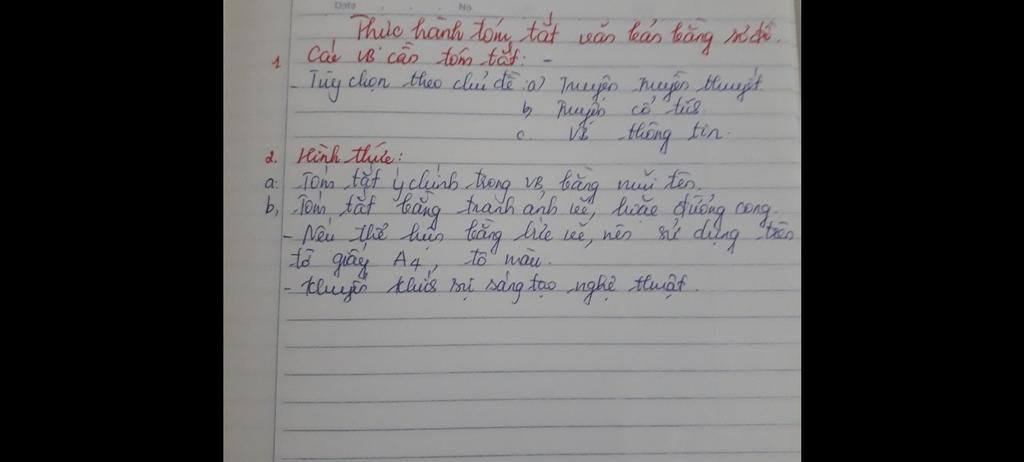 Date . . . No.
Thực hành tóm tắt văn bản bằng sơ đồ.
1 Các VB cần tóm tắt: -
- Tùy chọn theo chủ đề: a) Truyện truyền thuyết
b, Truyện cổ tích
c. VB thông tin.
2. Hình thức:
a. Tóm tắt ý chính trong VB bằng mũi tên.
b, Tóm tắt bằng tranh ảnh vẽ, hoặc đường cong.
- Nếu thể hiện bằng bức vẽ, nên sử dụng trên
tờ giấy A4, tô màu.
- Khuyến khích sự sáng tạo nghệ thuật.